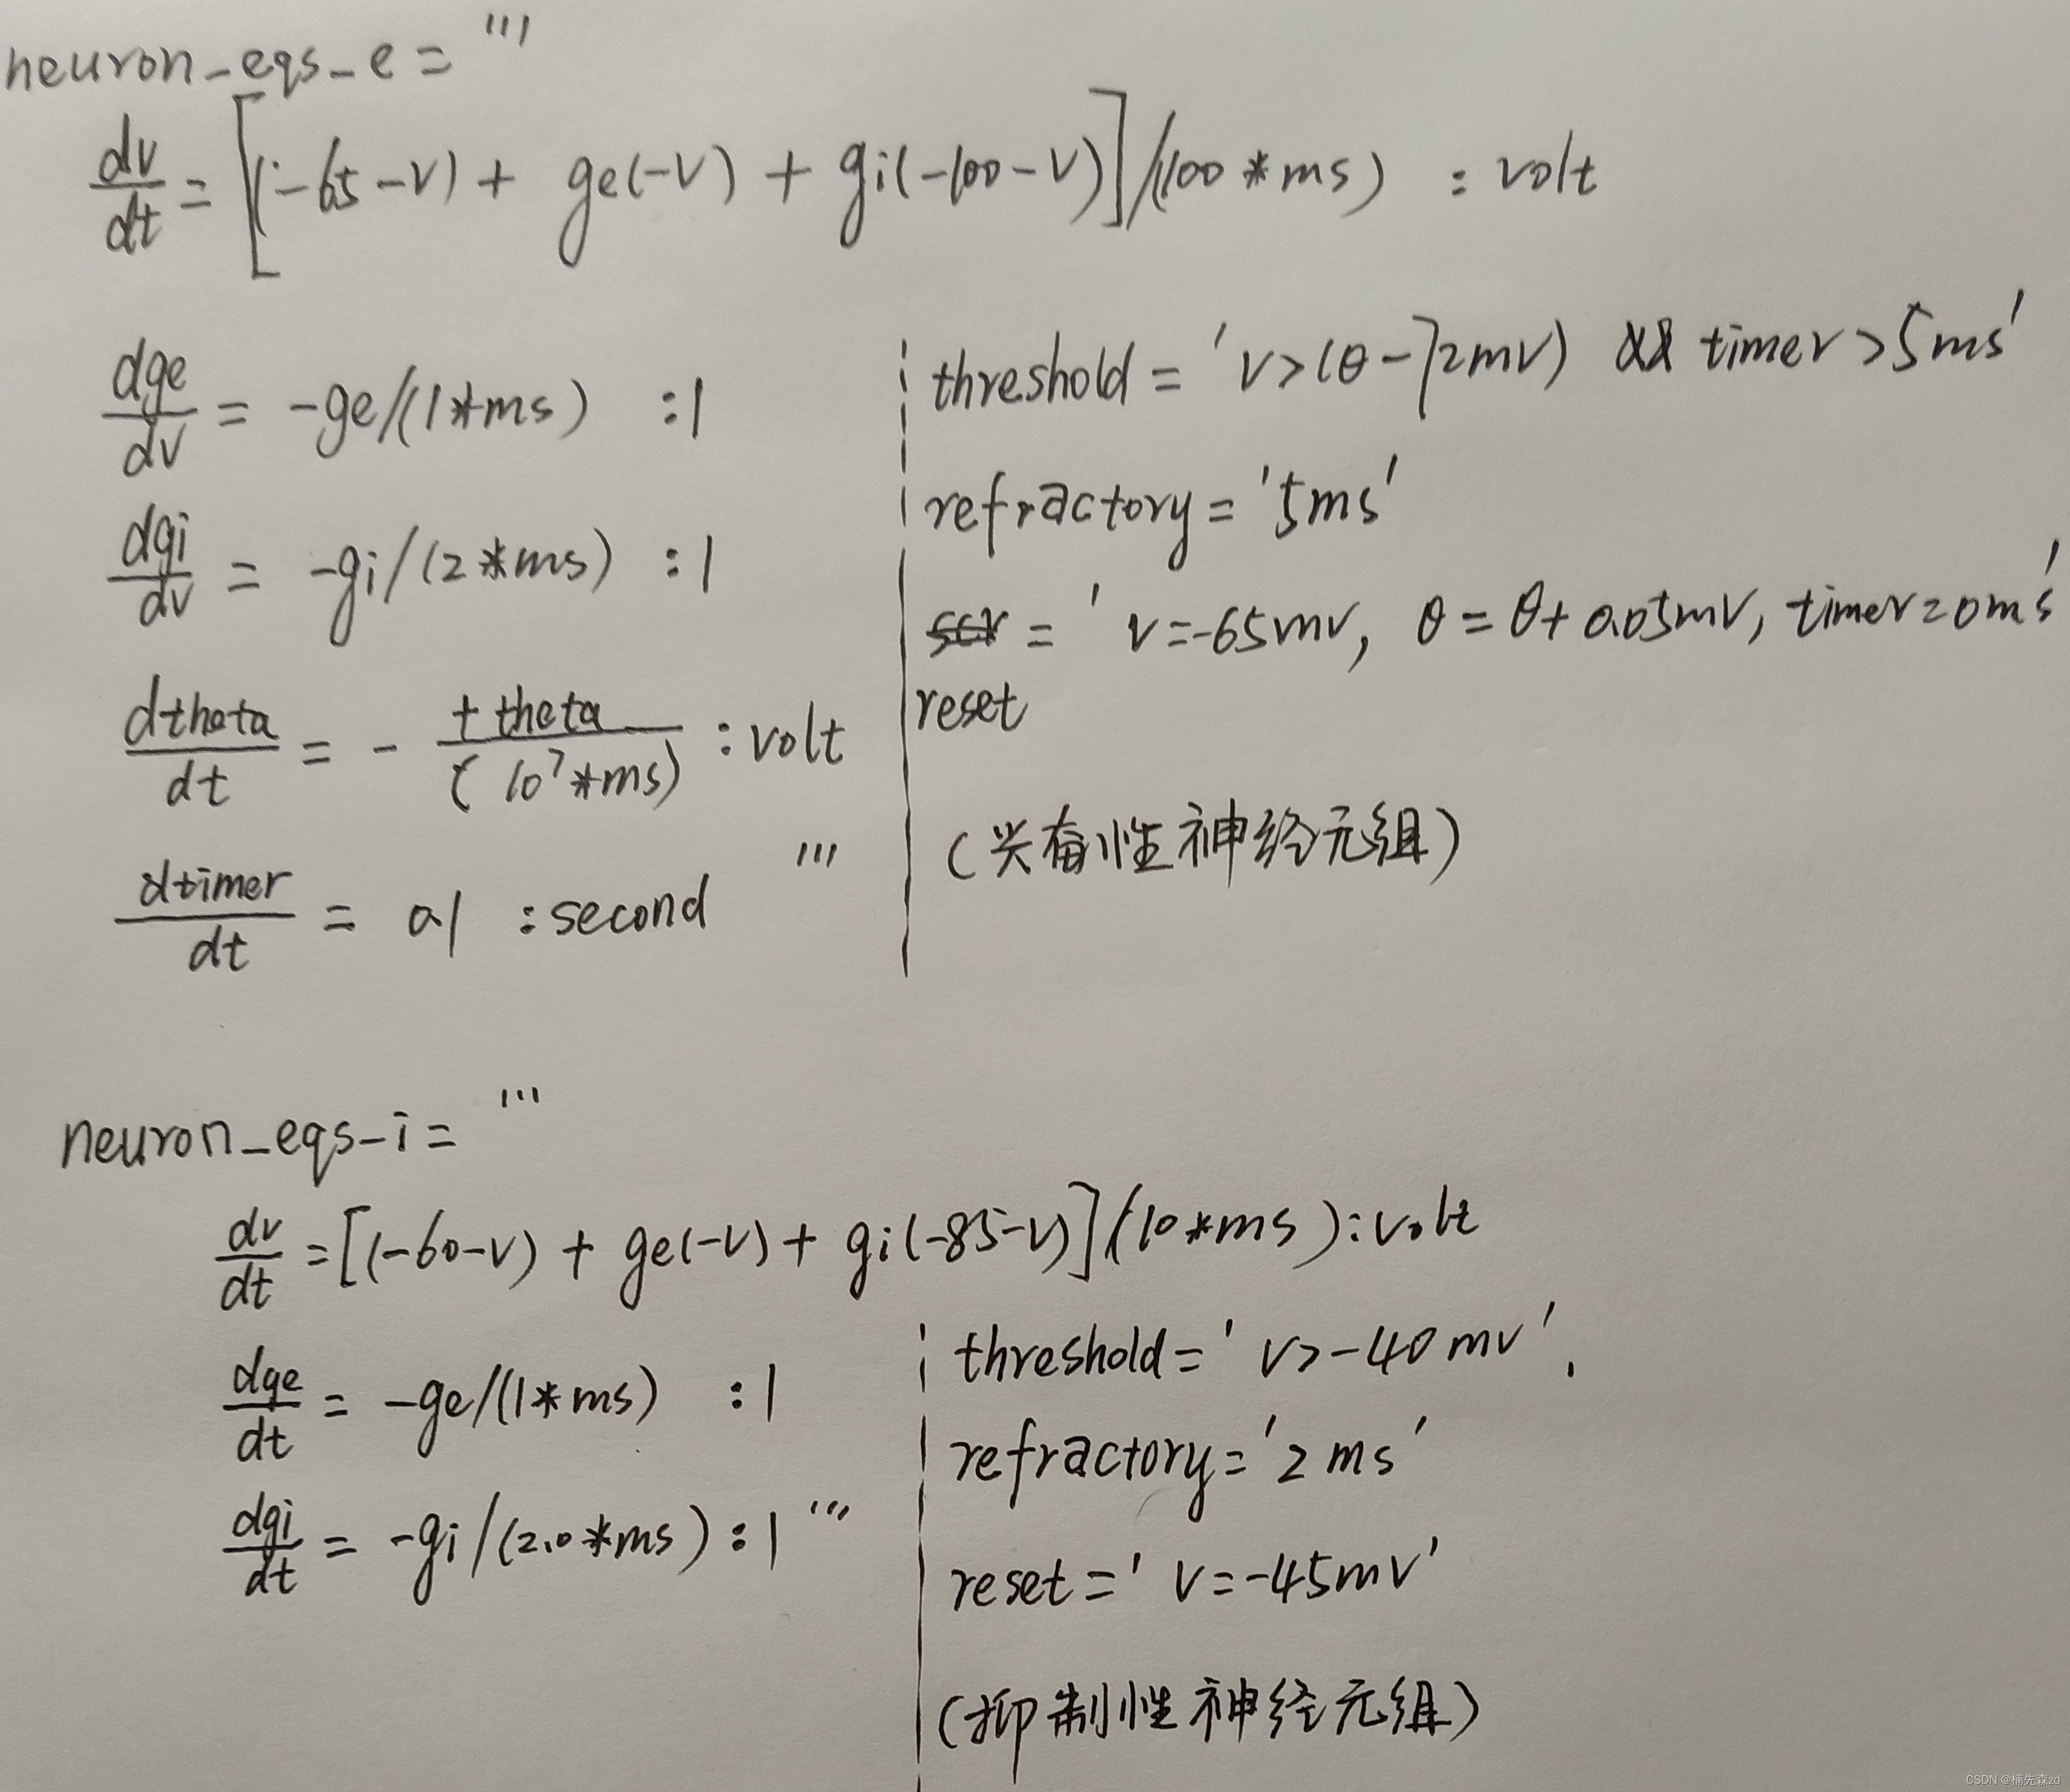 neuron_eqs_e = '''
dv/dt = [(-65-v) + ge(-v) + gi(-100-v)]/(100*ms) : volt
dge/dv = -ge/(1*ms) :1
dgi/dv = -gi/(2*ms) :1
dtheta/dt = - theta/(10^7*ms) : volt
dtimer/dt = 0.1 : second '''
threshold = 'v>(θ-72mV) && timer>5ms'
refractory = '5ms'
= 'v=-65mV, θ=θ+0.05mV, timer=0ms'
reset
(兴奋性神经元组)
neuron_eqs_i = '''
dv/dt = [(-60-v) + ge(-v) + gi(-85-v)]/(10*ms) : volt
dge/dt = -ge/(1*ms) :1
dgi/dt = -gi/(2.0*ms) :1 '''
threshold = 'v>-40mv',
refractory = '2ms'
reset = 'v=-45mV'
(抑制性神经元组)
CSDN @楠先森zd